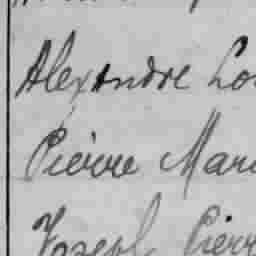 Alexandre Lo
Pierre Mar
Joseph Pierr